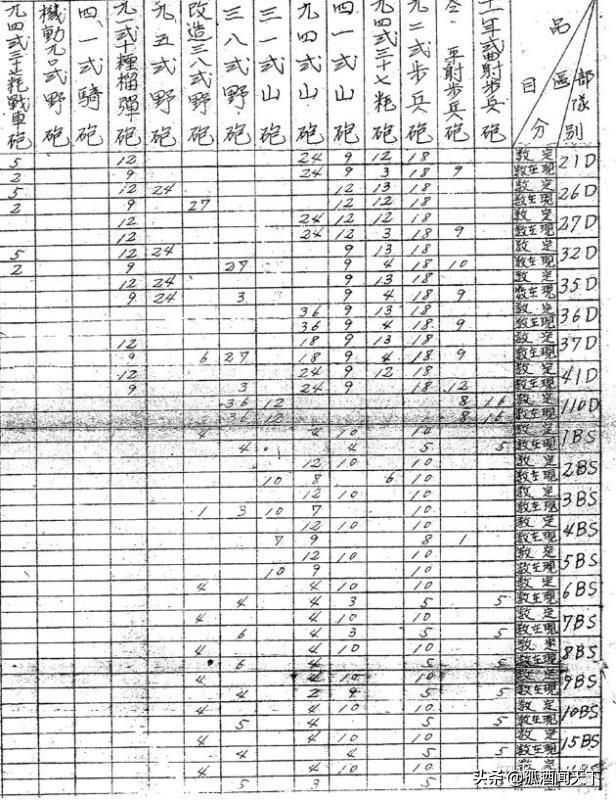 品目
区分
部隊別
十一年式曲射歩兵砲
仝 平射歩兵砲
九二式歩兵砲
九四式三十七粍砲
四一式山砲
九四式山砲
三一式山砲
三八式野砲
改造三八式野砲
九五式野砲
九一式十糎榴弾砲
四一式騎砲
機動九〇式野砲
九四式三十七粍戦車砲
21D 定数 18 12 9 24 12 5
現在数 9 18 3 9 24 9 2
26D 定数 18 13 12 24 12 5
現在数 18 12 12 27 9 2
27D 定数 18 12 12 24 12
現在数 9 18 3 12 24 12
32D 定数 18 13 9 24 12 5
現在数 10 18 4 9 27 9 2
35D 定数 18 13 9 24 12
現在数 9 18 4 9 3 24 9
36D 定数 18 13 9 36
現在数 9 18 4 9 36
37D 定数 18 13 9 18 12
現在数 9 18 4 9 18 27 6 9
41D 定数 18 12 9 24 12
現在数 12 18 9 24 3 9
110D 定数 16 8 12 36
現在数 16 8 12 36
1BS 定数 10 10 4 4
現在数 5 5 4 1 4
2BS 定数 10 10 12
現在数 10 6 8 10
3BS 定数 10 10 12
現在数 10 7 10 3 1
4BS 定数 10 10 12
現在数 1 8 9 7
5BS 定数 10 10 12
現在数 10 9 10
6BS 定数 10 10 4 4
現在数 5 5 3 4 4
7BS 定数 10 10 4 4
現在数 5 5 3 4 6
8BS 定数 10 10 4 4
現在数 5 5 4 6
9BS 定数 10 10 4 4
現在数 5 5 9 2 4
10BS 定数 10 10 4 4
現在数 5 5 4 5
15BS 定数 10 10 4 4
現在数 5 5 4 4
定数 10 10 4 4
5 3 5
头条 @狐酒闻天下